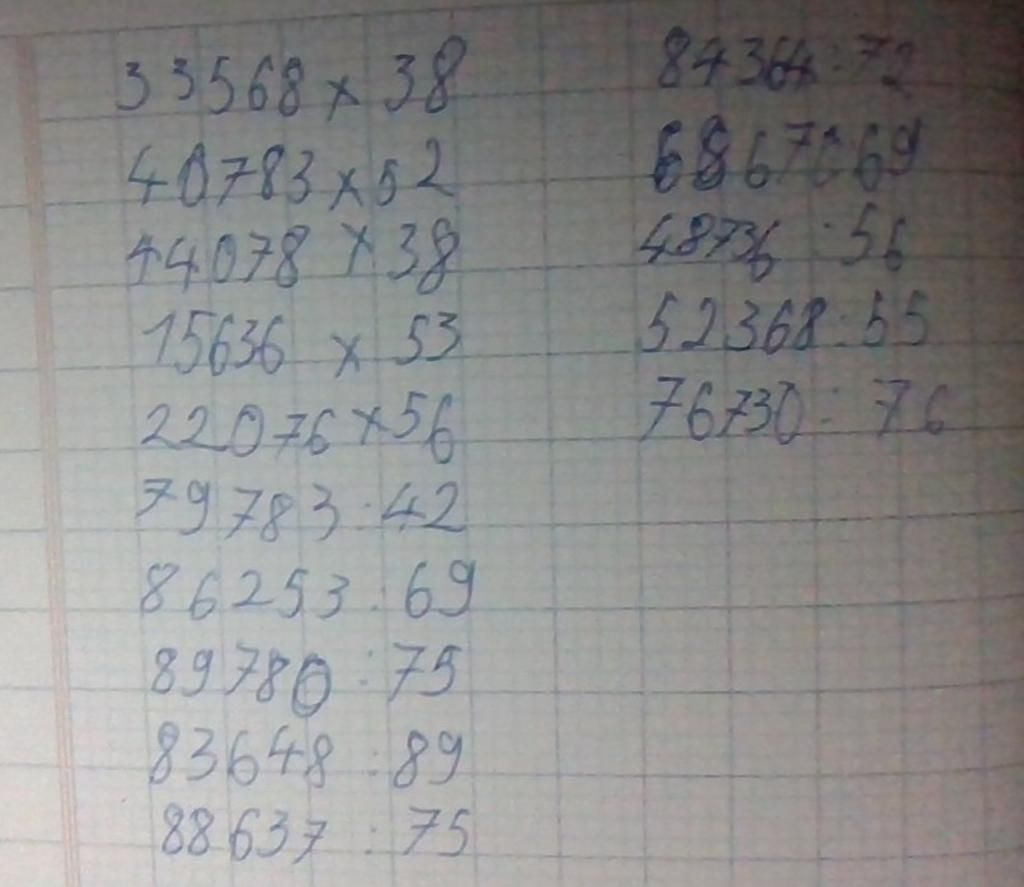 33568 x 38
40783 x 52
44078 x 38
15636 x 53
22076 x 56
79783 : 42
86253 : 69
89780 : 75
83648 : 89
88637 : 75
84364 : 72
68670 : 69
48736 : 56
52368 : 55
76730 : 76